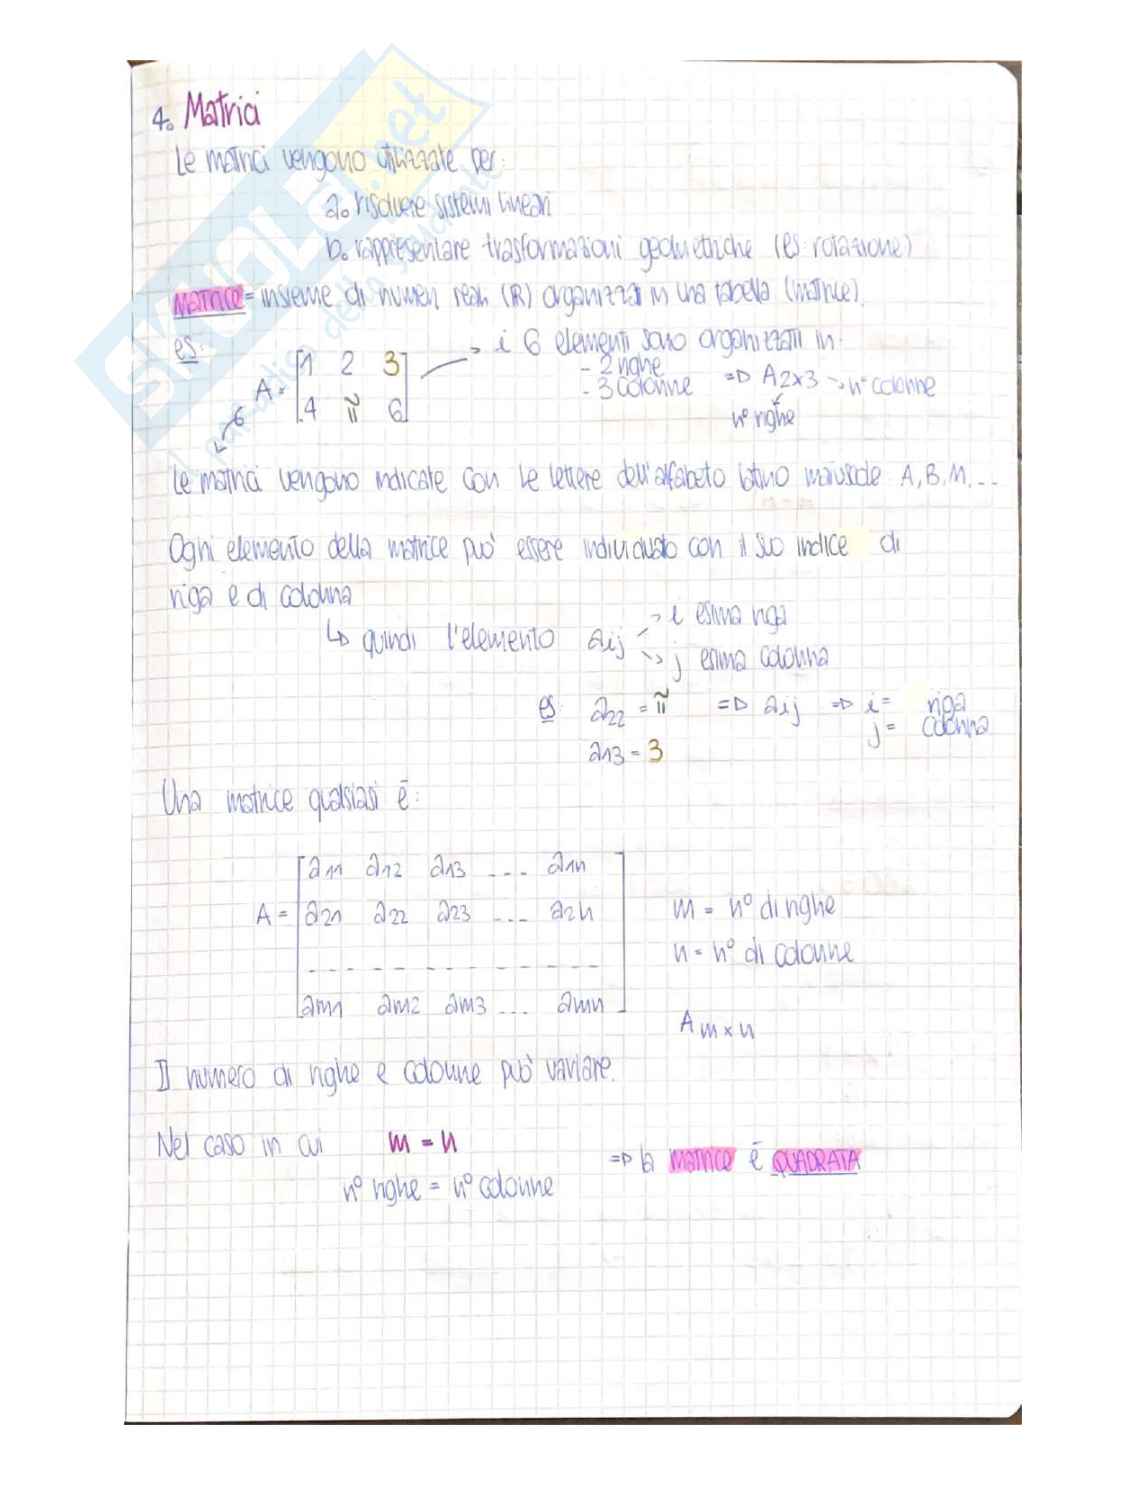 4. Matrici
Le matrici vengono utilizzate per:
a. risolvere sistemi lineari
b. rappresentare trasformazioni geometriche (es: rotazione)
MATRICE = insieme di numeri reali (ℝ) organizzati in una tabella (matrice).
es:
A = [1 2 3
4 π 6]
→ i 6 elementi sono organizzati in:
- 2 righe
- 3 colonne ⇒ A2x3 → n° colonne
n° righe
Le matrici vengono indicate con le lettere dell'alfabeto latino maiuscole A, B, M, ...
Ogni elemento della matrice può essere individuato con il suo indice di
riga e di colonna
↳ quindi l'elemento aij
→ i esima riga
→ j esima colonna
es: a22 = π ⇒ aij ⇒ i = riga
j = colonna
a13 = 3
Una matrice qualsiasi è:
a11 a12 a13 ... a1n
A = a21 a22 a23 ... a2n
- - - - - - - - - -
am1 am2 am3 ... amn
m = n° di righe
n = n° di colonne
A m x n
Il numero di righe e colonne può variare.
Nel caso in cui m = n
n° righe = n° colonne
⇒ la MATRICE è QUADRATA
SKUOLA.net
il paradiso dello studente